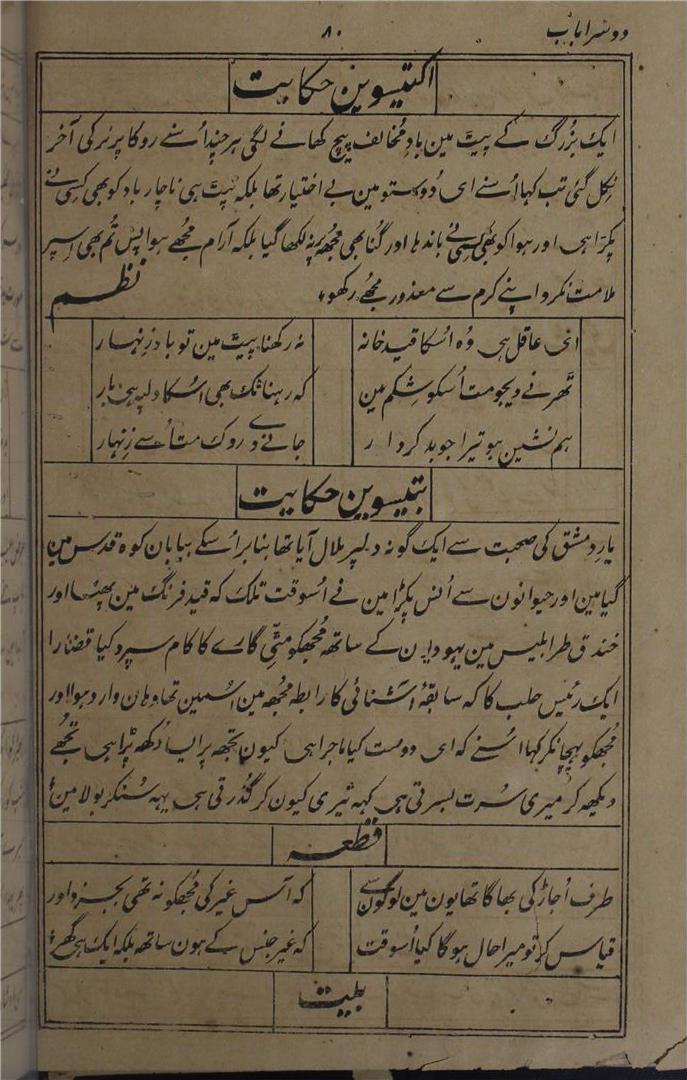 دوسرا باب
۸۰
اکتیسوین حکایت
ایک بزرگ کے پیٹ مین بادِ مخالف پیچ کھانے لگی ہر چند اُسنے روکا پر نرکی آخر
نکل گئی تب کہا اُسنے ای دوستو مین بے اختیار تھا بلکہ نپٹ ہی ناچار باد کو بھی کسی نے
پکڑا ہی اور ہوا کو بھی کسی نے باندھا اور گناہ بھی مجھپہ نہ لکھا گیا بلکہ آرام مجھے ہوا پس تم بھی اسپر
ملامت نکرو اپنے کرم سے معذور مجھے رکھو
نظم
انی عاقل ہی وہ اسکا قید خانہ
نہ رکھنا پیٹ مین تو باد زنہار
ٹھرنے دیجو مت اُسکو شکم مین
کہ رہنا تک بھی اُسکا دلپہ ہی بار
ہم نشین ہو تیرا جو بد کردار
جانے دے روک مت اُسے زنہار
بتیسوین حکایت
یارِ دمشق کی صحبت سے ایک گونہ دلپر ملال آیا تھا بنا بر اُسکے بیابان کوہ قدس مین
گیا مین اور حیوانون سے اُنس پکڑا مین نے اُسوقت تلک کہ قید فرنگ مین پھنسا اور
خندق طرابلیس مین یہودیون کے ساتھ مجھکو مٹی گارے کا کام سپرد کیا قضارا
ایک رئیس حلب کا کہ سابقۂ آشنائی کا رابطہ مجھ مین اُسمین تھا وہان وارد ہوا اور
مجھکو پہچانکر کہا اُسنے کہ ای دوست کیا ماجرا ہی کیون تجھ پر ایسا دکھ پڑا ہی تجھے
دیکھ کر میری سُرت بسرتی ہی کہہ تیری کیون کر گذرتی ہی یہہ سُنکر بولا مین
قطعہ
طرف اُجاڑ کی بھاگا تھا یون مین لوگون سے
کہ آس غیر کی مجھکو نہ تھی بجز داور
قیاس کر تو میرا حال ہوگا کیا اُسوقت
کہ غیر جنس کے ہون ساتھ بلکہ ایک ہی گھر
بیت